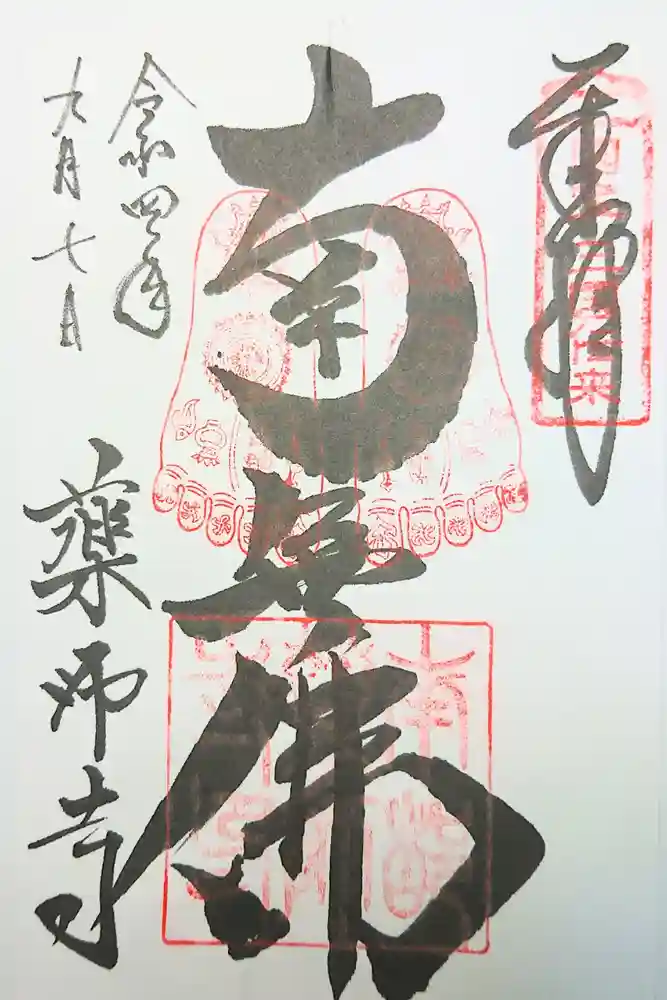 奉拝
南無佛
令和四年
九月七日
薬師寺